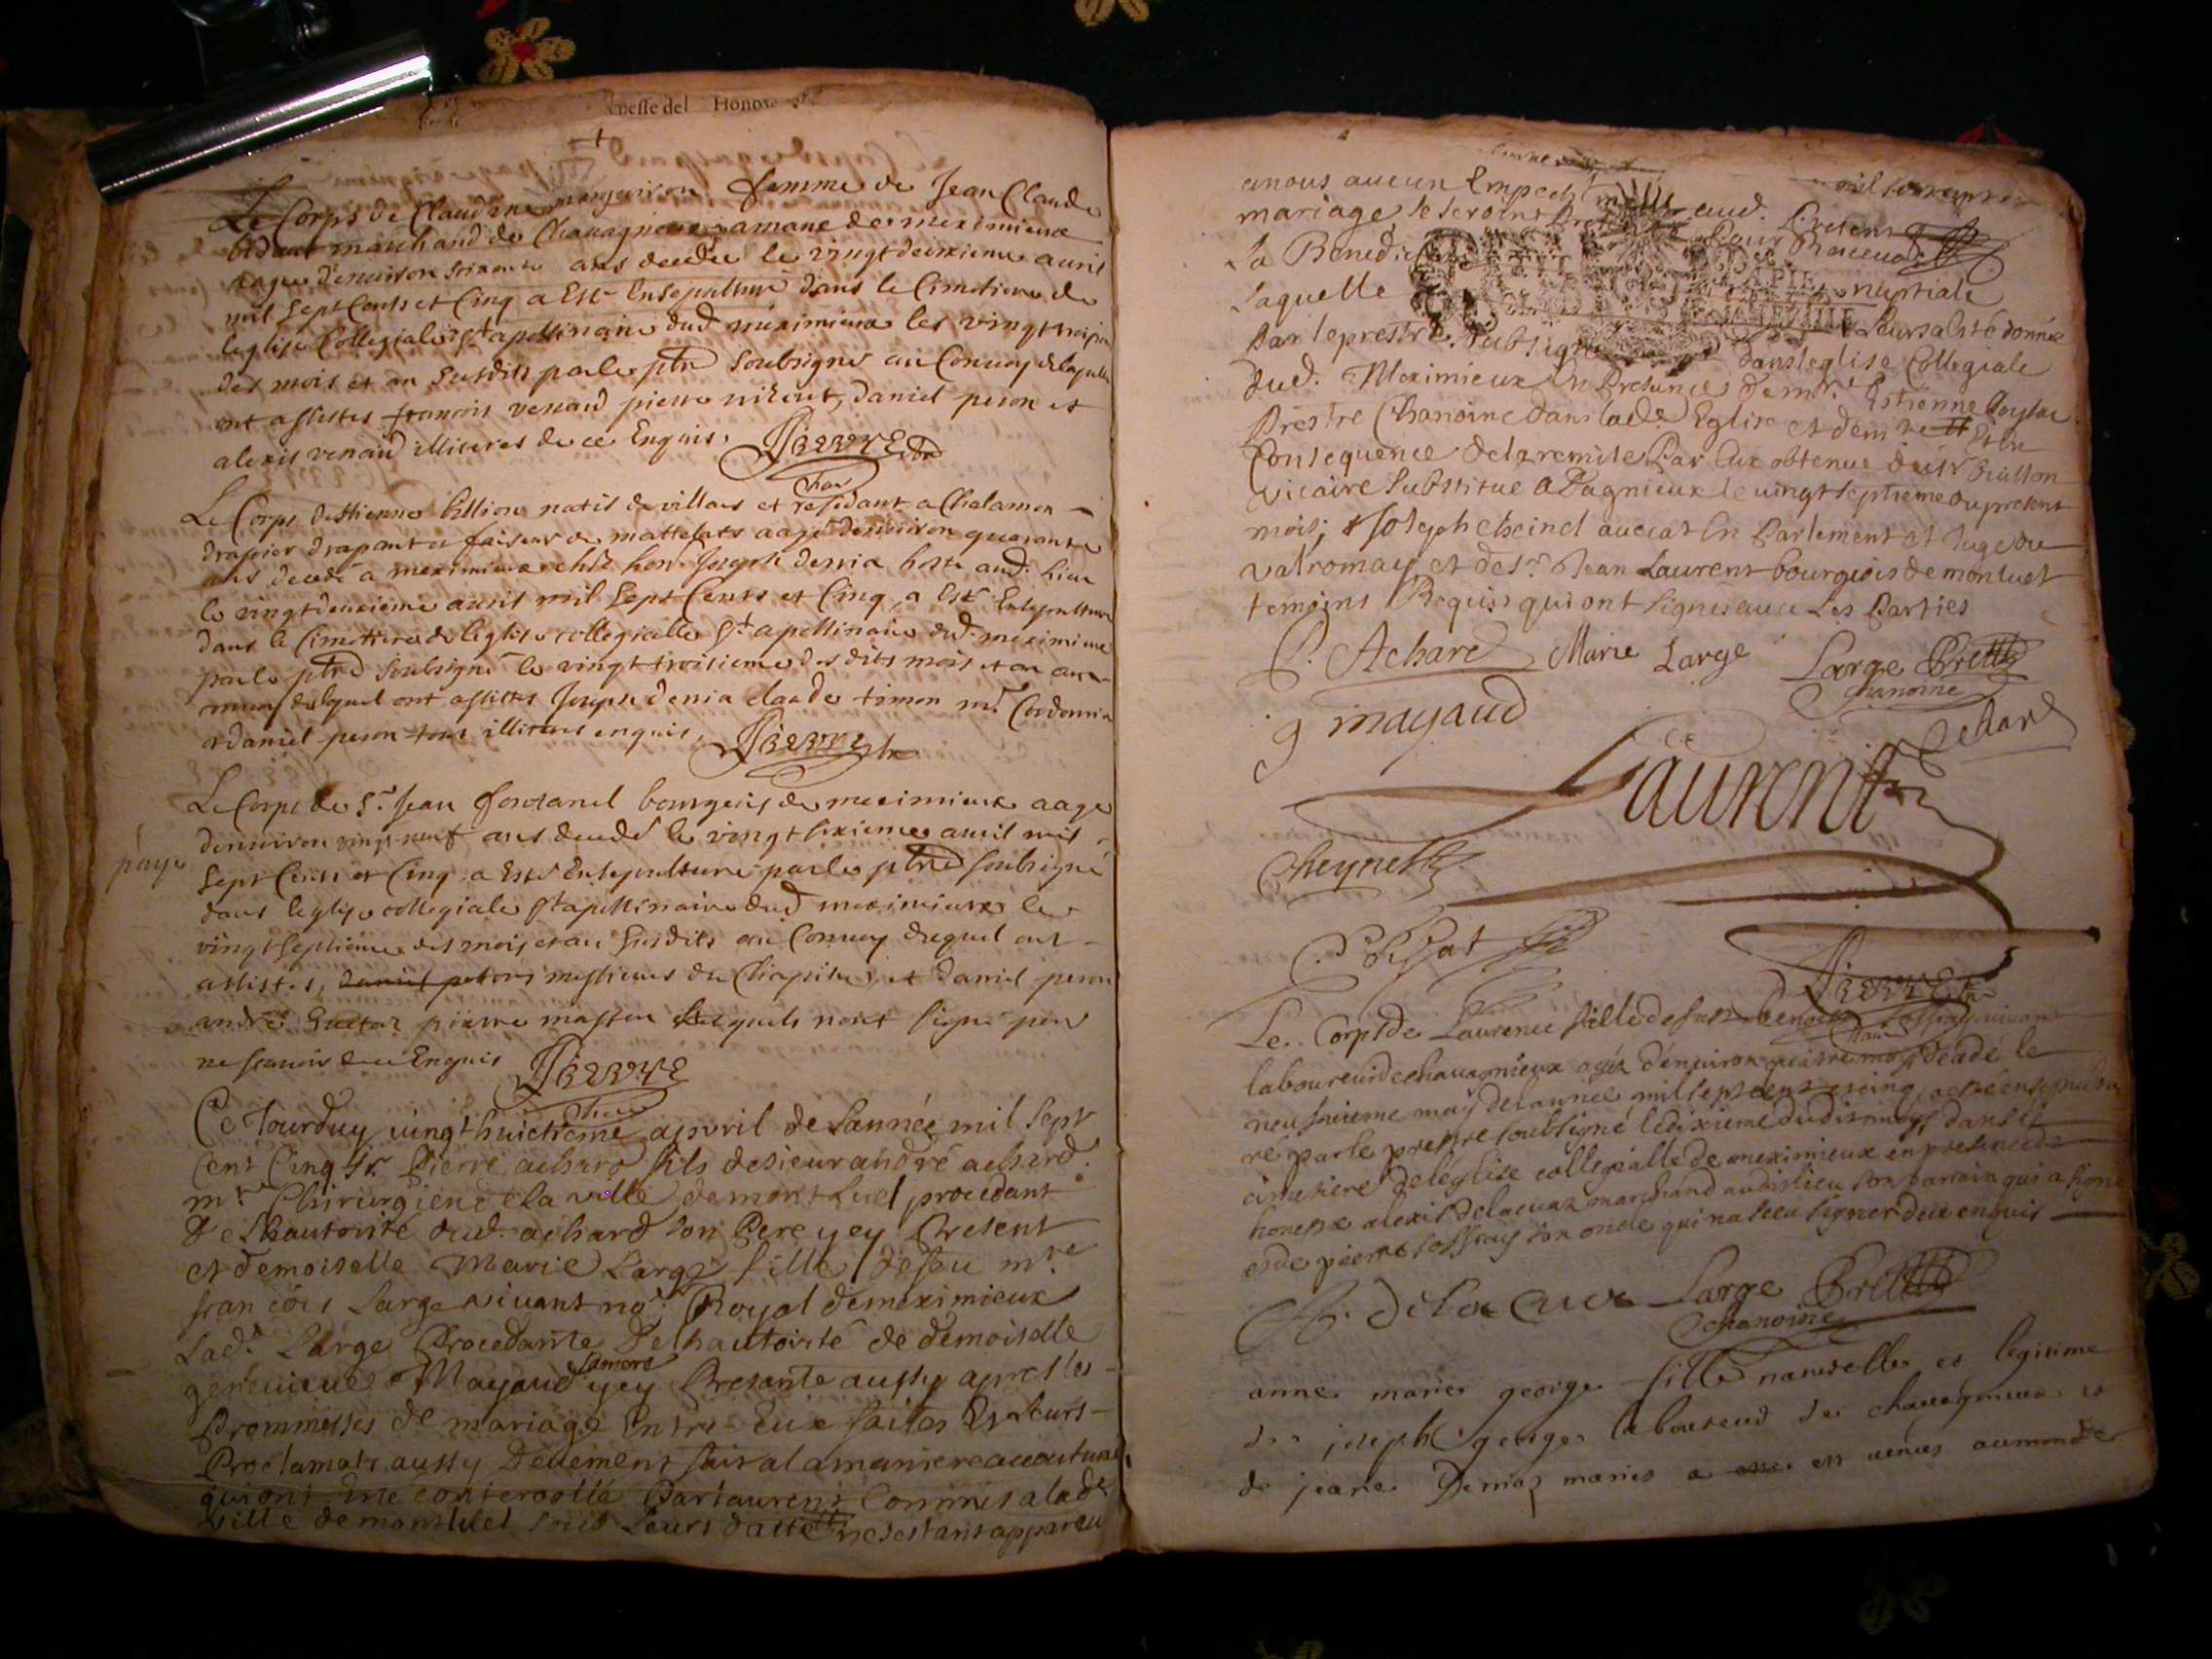 Honore
Le Corps de Claudine femme de Jean Claude
bidaut marchand de Chavagneux amane de meximieux
aagee denviron soixante ans decedee le vingt deuxieme avril
mil sept Cents et Cinq a Esté Ensepulturé dans le Cimetiere de
leglise Collegiale St apollinaire dud meximieux le vingt troisie
des mois et an susdits par le ptre soubsigné au Convoy de laquelle
ont assistes francois venard pierre daniel peron et
alexis venard illiteres de ce Enquis.
Le Corps destienne billion natif de villars et residant a Chalamon
drapier drapant et faiseur de mattelats aagé denviron quarante
ans decedé a meximieux chez hon. Joseph denia hoste aud. lieu
le vingt deuxieme avril mil sept Cents et Cinq, a Esté Ensepulturé
dans le Cimettiere de leglise collegialle St apollinaire dud. meximieux
par le ptre soubsigné le vingt troisieme des dits mois et an au con-
vuoy duquel ont assistes Joseph denia claude timon mr Cordonnier
et daniel peron tous illiteres enquis.
Le Corps de Sr. Jean fontanel bourgeois de meximieux aage
denviron vingt neuf ans decedé le vingt sixieme avril mil
paye
sept Cents et Cinq a Esté Ensepulturé par le ptre soubsigné
dans leglise collegiale St apollinaire dud meximieux le
vingt septieme des mois et an susdits au Convoy duquel ont
assistes, daniel peron messieurs du Chapitre, et daniel peron
andré pierre masson lesquels nont signé pour
ne scavoir de ce Enquis
Ce Jourduy vingt huictieme apvril de Lannée mil sept
Cent Cinq Sr. Pierre achard fils de sieur andré achard
mre Chirurgien de la ville de montluel procedant
de Lhautorité dud. achard son Pere yey Present
et demoiselle Marie Large fille de feu mre
francois Large vivant nore Royal de meximieux
Lade. Large Procedante de Lhautorité de demoiselle
genevieve Mayaud yey Presante aussy apres les
Prommesses de mariage Entre Eux faites Et Leurs
Proclamats aussy Deuement fait a la maniere accoutumé
qui ont été conterollé Par laurent Commis a lade.
ville de montluel sous Leurs datte ne sestant appareu
a nous aucun Empech
mariage se seroint aud. Present
La Benedic Pour Recevoir
Laquelle nuptiale
Par le prestre subsigné Leurs a esté donnée
dud. Meximieux En Presence de mr. Estienne dans leglise Collegiale
Prestre Chanoine dans lade. Eglise et de mre Et En
Consequence de la remise Par Eux obtenue de sr Brisson
vicaire substitue a Dagnieux le vingt septieme du present
mois; Joseph cheinel avocat En Parlement et Juge du
valromay et de sr. Jean Laurent bourgeois de montluel
temoins Requis qui ont signes avec Les Parties
P. Achard Marie Large Large Prettre
Chanoine
g mayaud
achard
Laurent
Cheynell
Le Corps de Laurence fille de feu benoit vivant
laboureur de chavagnieux agée d'environ quatre mois decedé le
neufvieme may de lannée mil sept cent et cinq, a esté ensepultu
ré par le prestre soubsigné le dixieme dudit moys dans le
cimetiere de leglise collegialle de meximieux en presence de
honeste alexis delacua marchand audit lieu son parrain qui a signé
et de pierre son oncle qui na sceu signer de ce enquis
A. delacua Large Prettre
chanoine
anne marie george fille naturelle et legitime
de joseph george laboureur de chavagnieux et
de jeane Demas mariés a est venue au monde